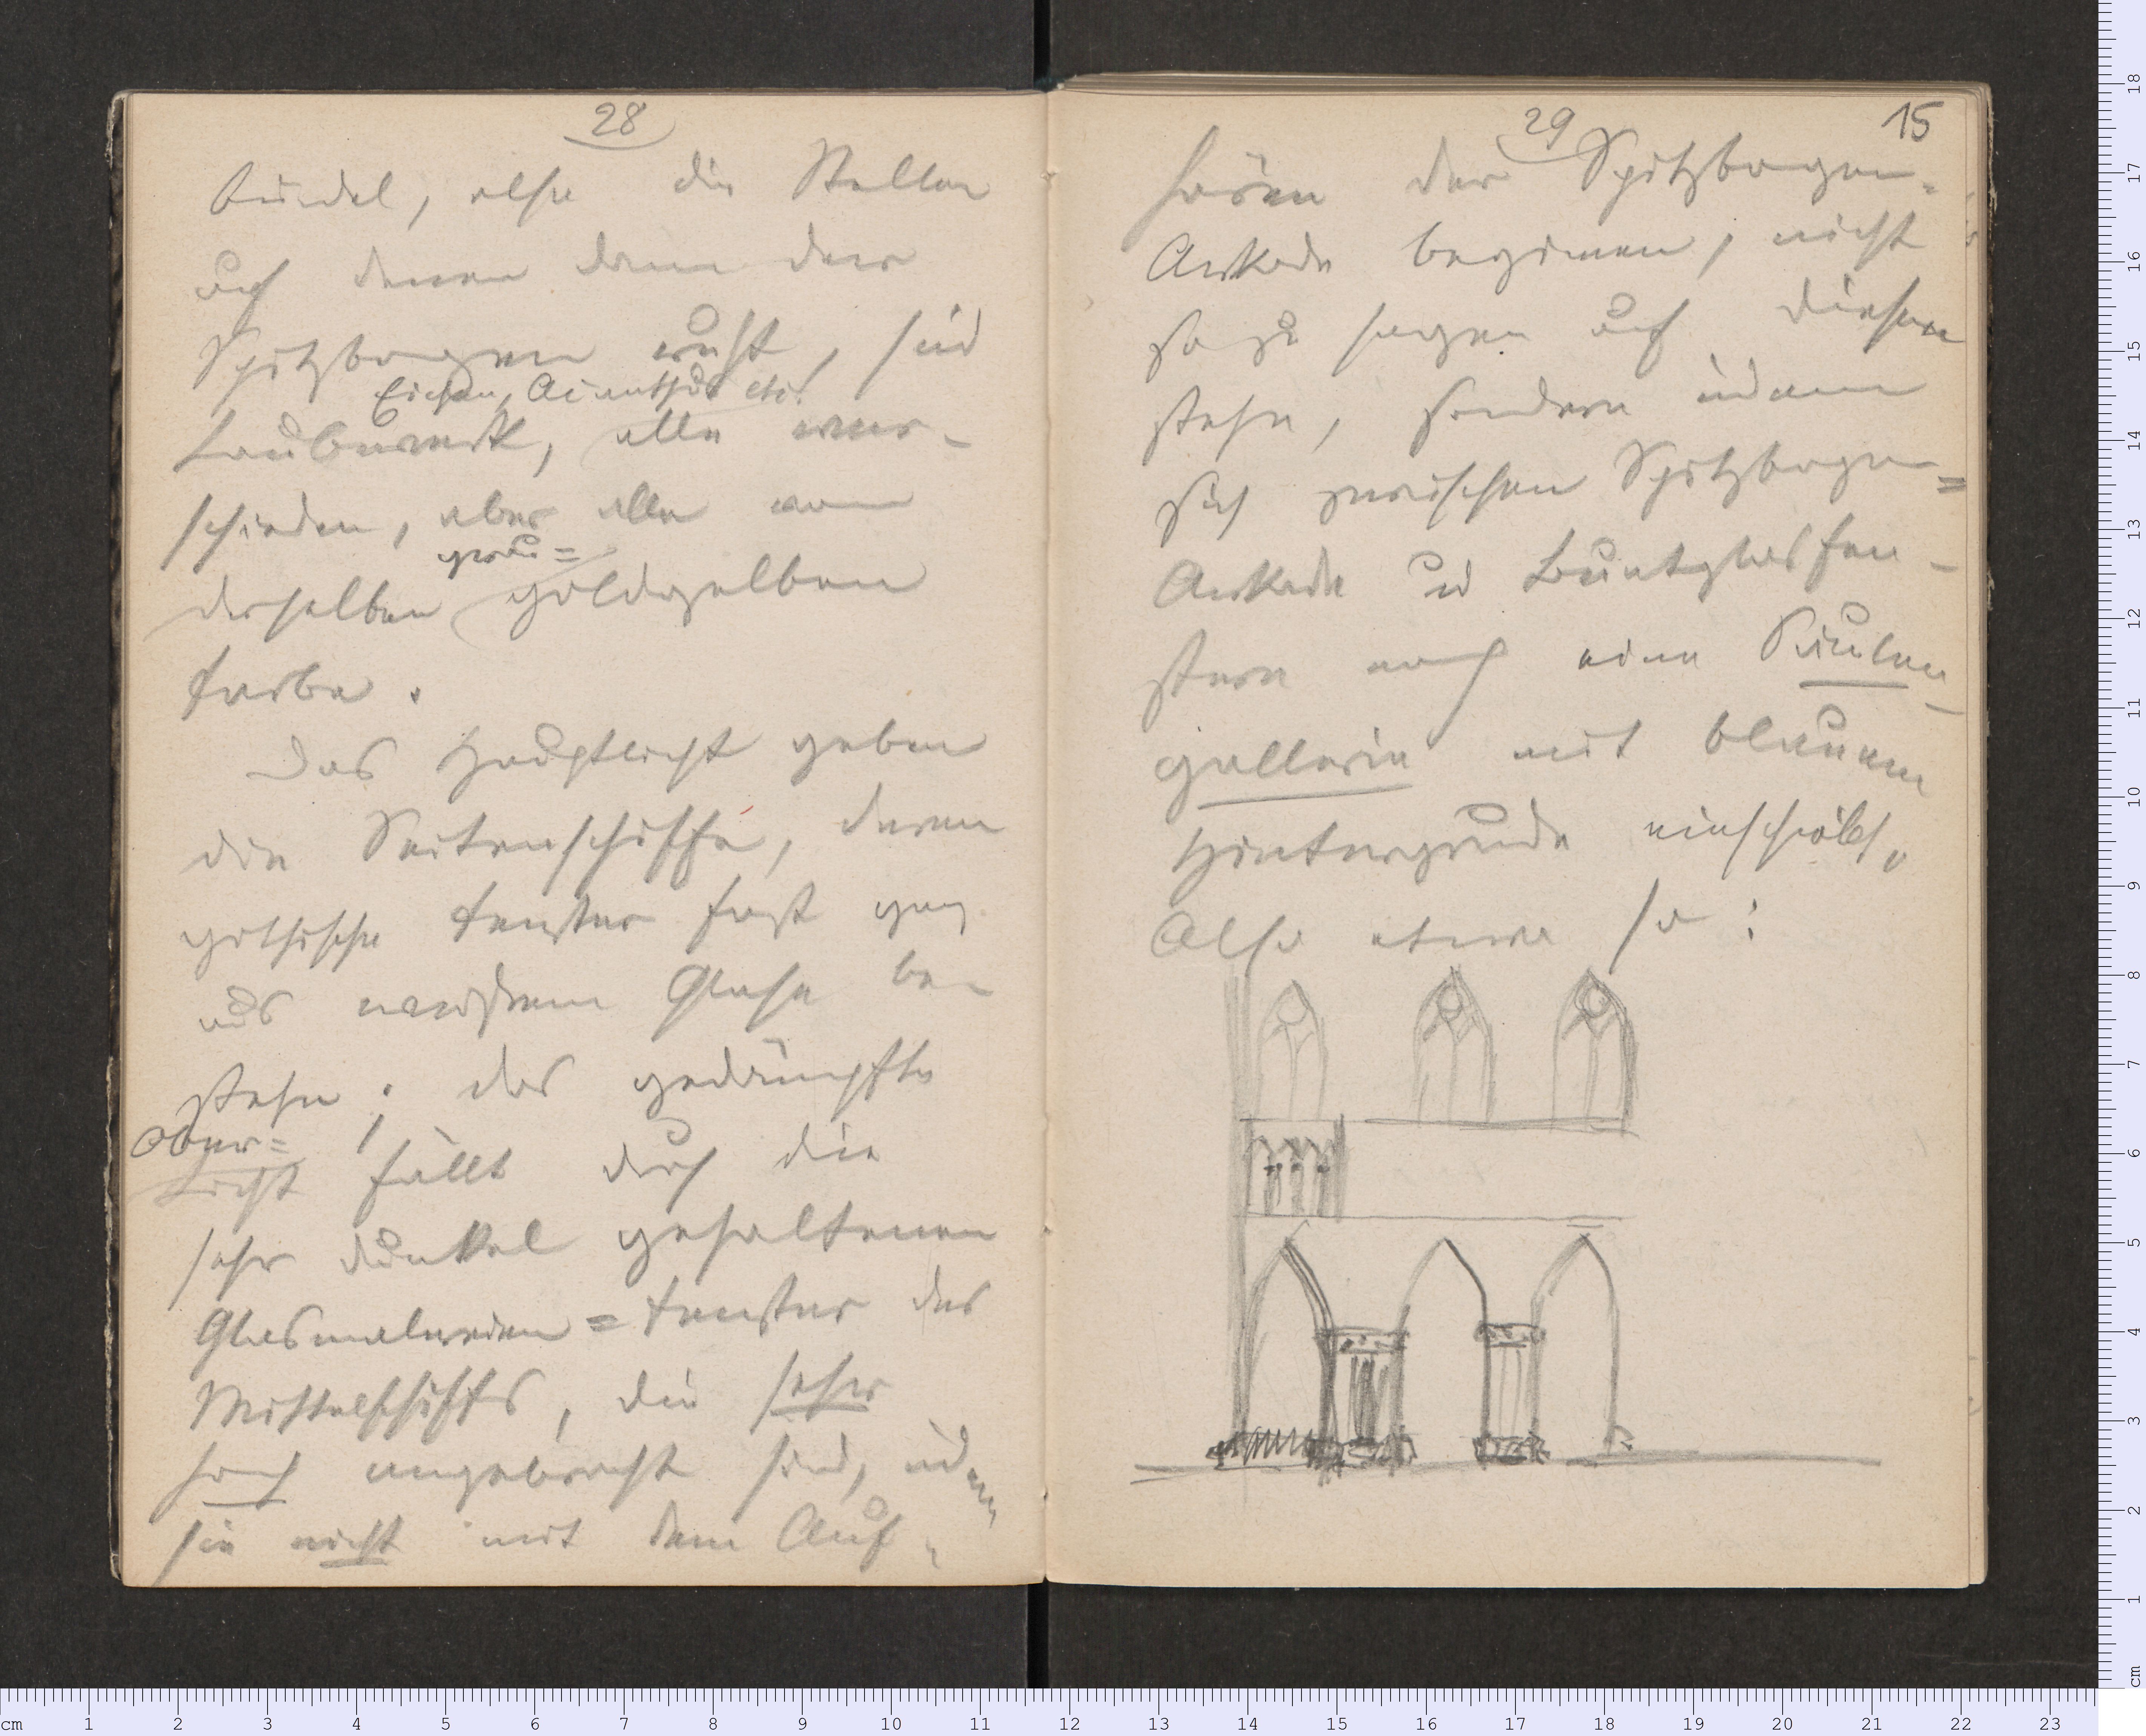 28
bündel, also die Stellen
auf denen dann der
Spitzbogen ruht, sind
Eichen, Acanthus etc.
Laubwerk, alle ver-
schieden, aber alle von
grau=
derselben goldgelben
Farbe.
Das Hauptlicht geben
die Seitenschiffe, deren
gothische Fenster fast ganz
aus weißem Glase be-
stehn; das gedämpfte
Ober=
Licht fällt durch die
sehr dunkel gehaltenen
Glasmalereien=Fenster des
Mittelschiffs, die sehr
hoch angebracht sind, indem
sie nicht mit dem Auf-
29
15
hören der Spitzbogen-
Arkade beginnen, nicht
so zu sagen auf dieser
stehn, sondern indem
sich zwischen Spitzbogen=
Arkade und Buntglasfen-
stern noch eine Säulen-
gallerie mit blauem
Hintergrunde einschiebt.
Also etwa so: